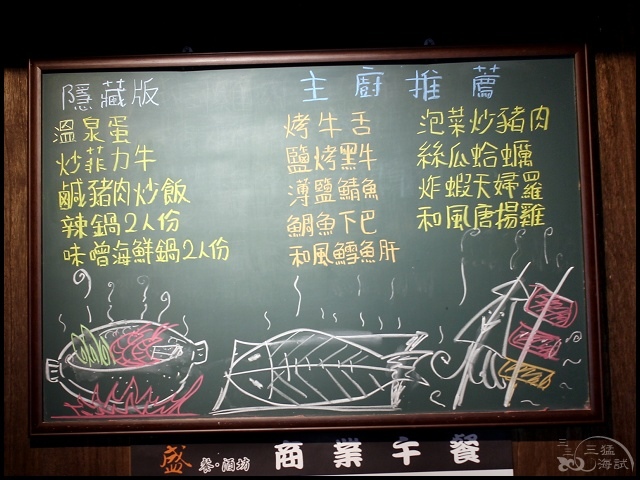 隱藏版
溫泉蛋
炒菲力牛
鹹豬肉炒飯
辣鍋2人份
味噌海鮮鍋2人份
主廚推薦
烤牛舌
鹽烤黑牛
薄鹽鯖魚
鯛魚下巴
和風鱈魚肝
泡菜炒豬肉
絲瓜蛤蠣
炸蝦天婦羅
和風唐揚雞
盛 餐·酒坊 商業午餐
三猛海試